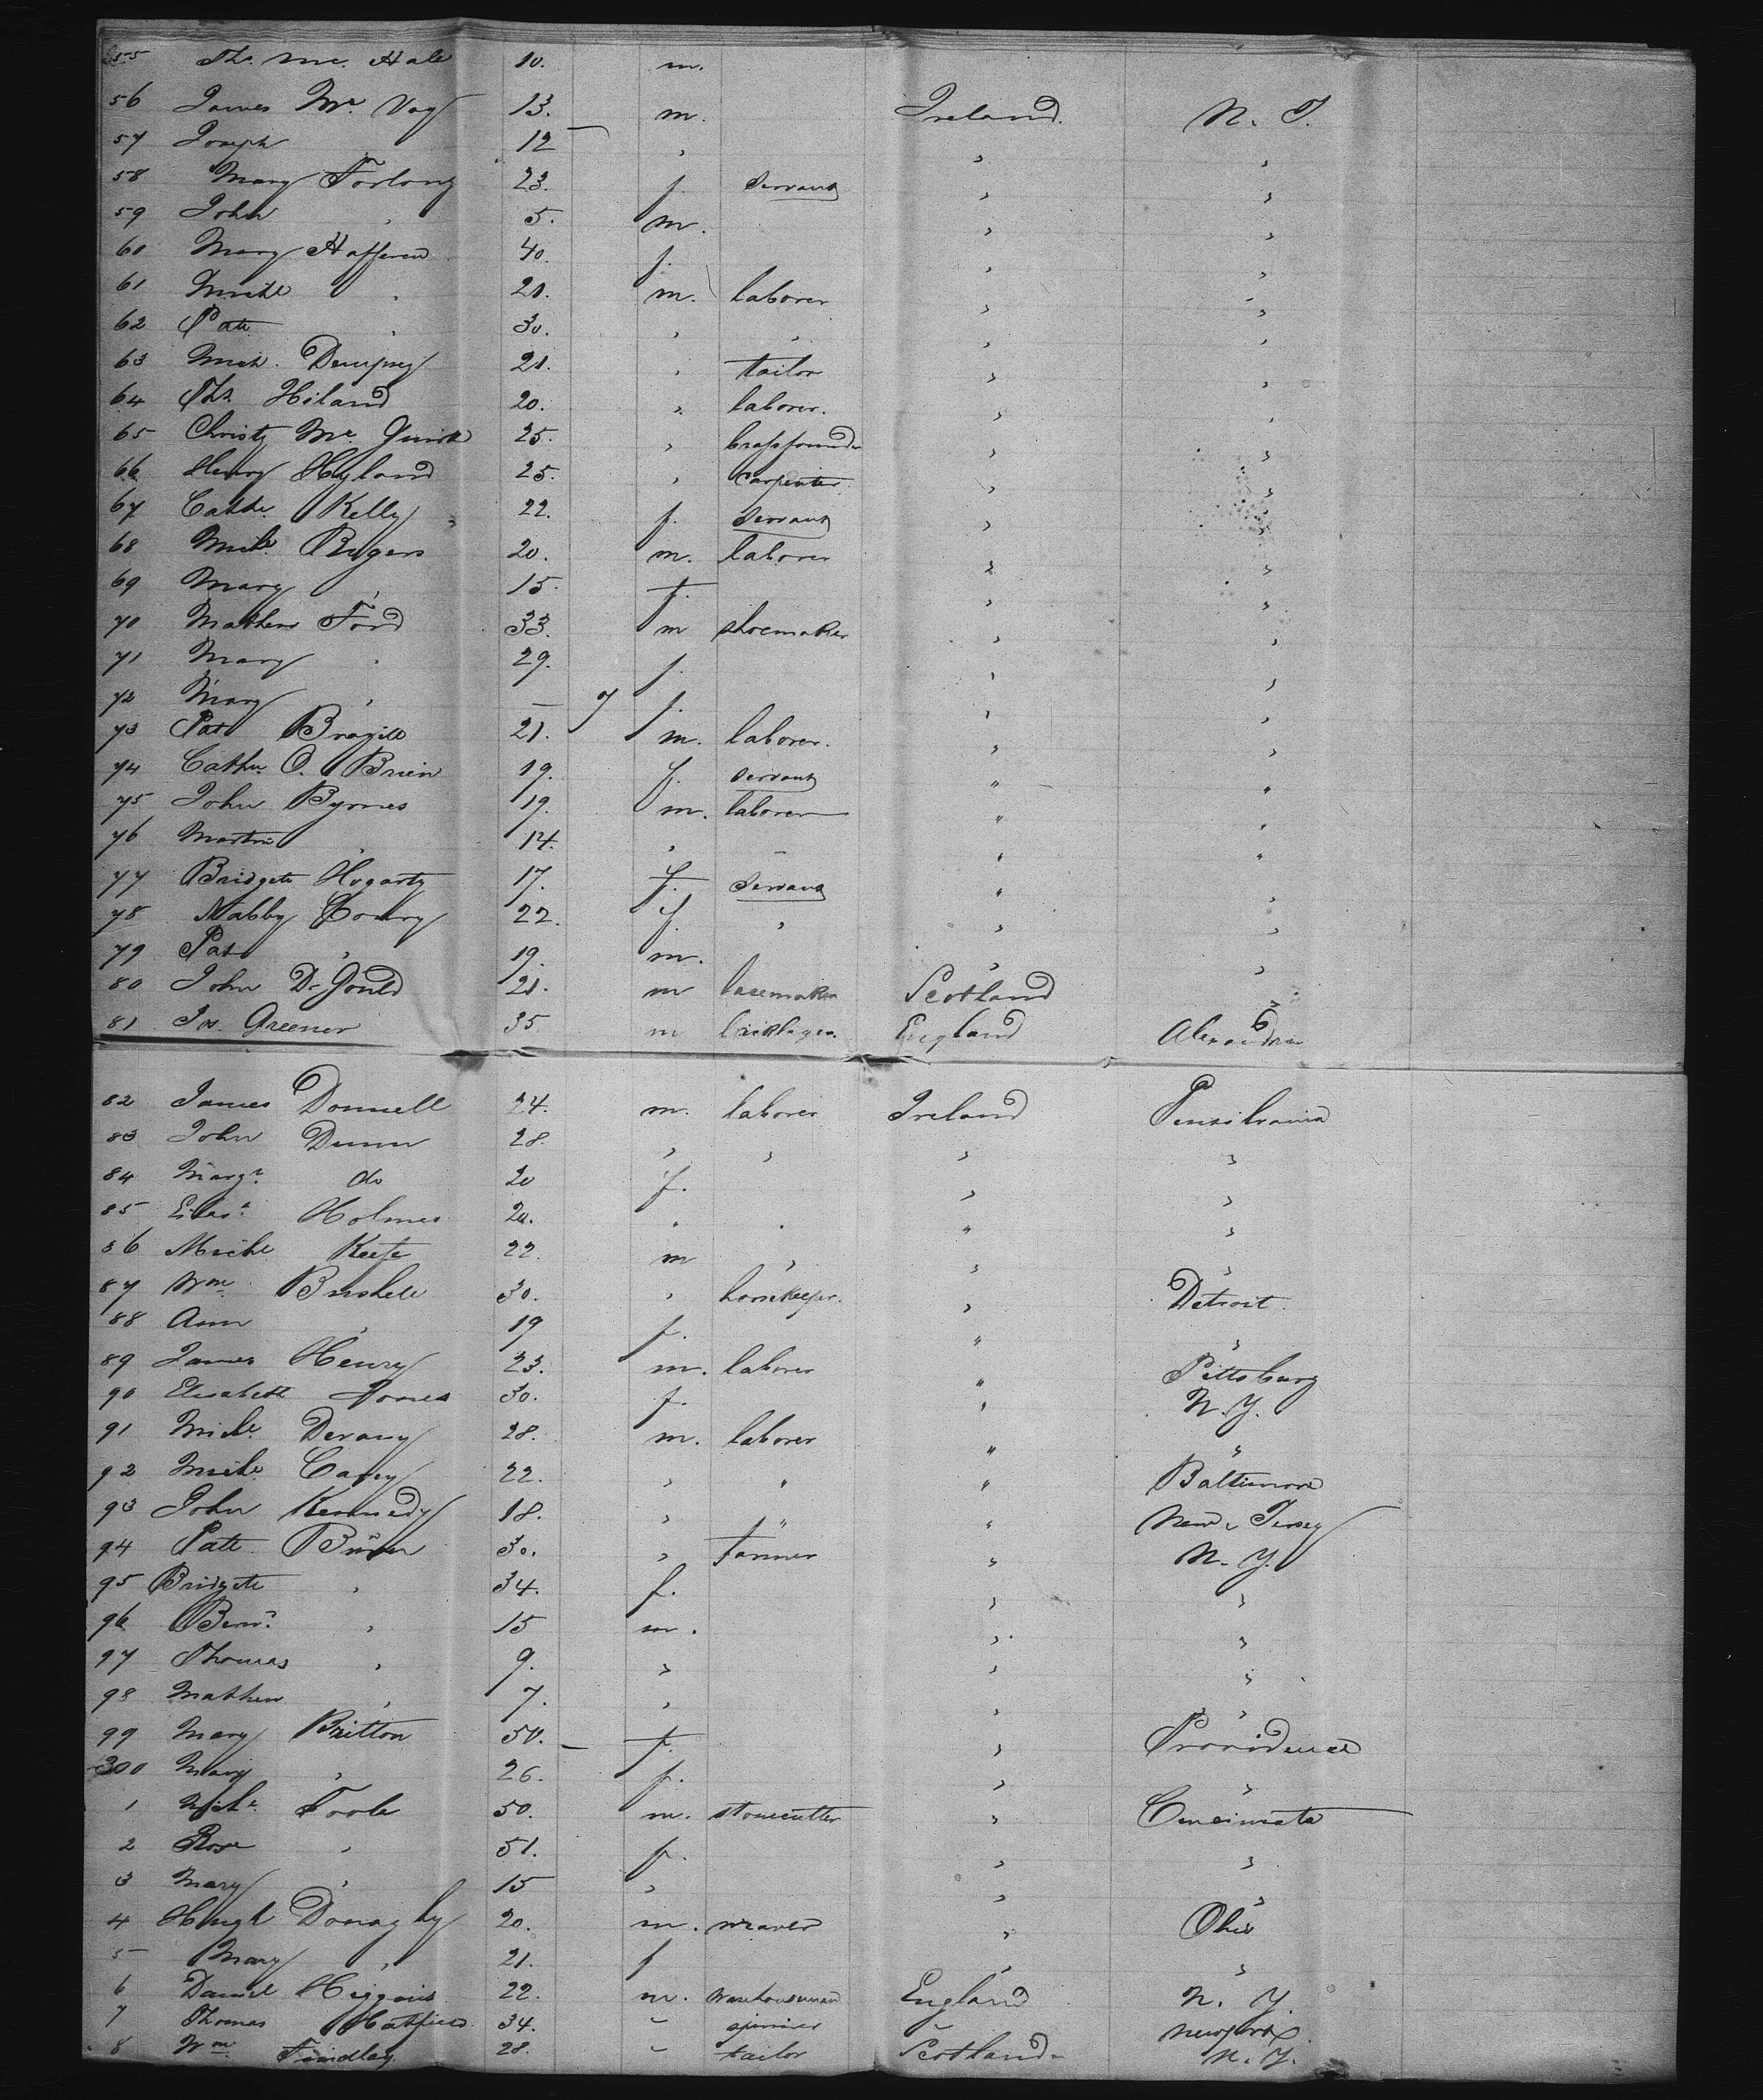 55 Th. Mc. Hale 10. m.
56 James Mc. Voy 13. m. Ireland. N. Y.
57 Joseph 12 " " "
58 Mary Forlong 23. f. servant " "
59 John " 5. m. " "
60 Mary Hafferen 40. f. " "
61 Michl " 21. m. laborer " "
62 Patk " 30. " " " "
63 Mich. Dempsey 21. " tailor " "
64 Ths. Hiland 20. " laborer. " "
65 Christy Mc. Quirk 25. " brassfounder " "
66 Henry Hyland 25. " carpenter " "
67 Cathe. Kelly 22. f. servant " "
68 Michl. Rogers 20. m. laborer " "
69 Mary " 15. f. " "
70 Mathew Ford 33. m shoemaker " "
71 Mary " 29. f. " "
72 Mary " — 7 f. " "
73 Pat 21. m. laborer. " "
74 Cathn. O. Brien 19. f. servant " "
75 John Byrnes 19. m. laborer " "
76 Martin " 14. " - " "
77 Bridgett Hogarty 17. f. servant " "
78 Nabby 22. f. " " "
79 Pat " 19. m. " "
80 John D. Gould 21. m lacemaker Scotland "
81 Js. Greener 35 m bricklayer. England
82 James Donnell 24. m. laborer Ireland Pensilvania
83 John Dunn 28. " " " "
84 Margt. do 20 f. " "
85 Holmes 20. " " " "
86 Michl Keefe 22. m " " "
87 Wm. Bushell 30. " " Detroit.
88 Ann " 19 f. " "
89 James Henry 23. m. laborer " Pittsburg
90 Elisabeth Jones 30. f. " N. Y.
91 Michl. Devany 28. m. laborer " "
92 Michl. Carey 22. " " " Baltimore
93 John Kennedy 18. " " " New Jersey
94 Patt 30. " farmer " N. Y.
95 Bridgett " 34. f. " "
96 " 15 m. " "
97 Thomas " 9. " " "
98 Mathew " 7. " " "
99 Mary Britton 50. — f. " Providence
300 Mary " 26. f. " "
1 Michl. Toole 50. m. stonecutter " Cincinnata
2 Rose " 51. f. " "
3 Mary " 15 " " "
4 Hugh Donaghy 20. m. weaver " Ohio
5 Mary " 21. f " "
6 Daniel Higgins 22. m. warehouseman England N. Y.
7 Thomas Hatfield 34. " spinner " Newyork
8 Wm. Findlay. 28. " tailor Scotland. N. Y.